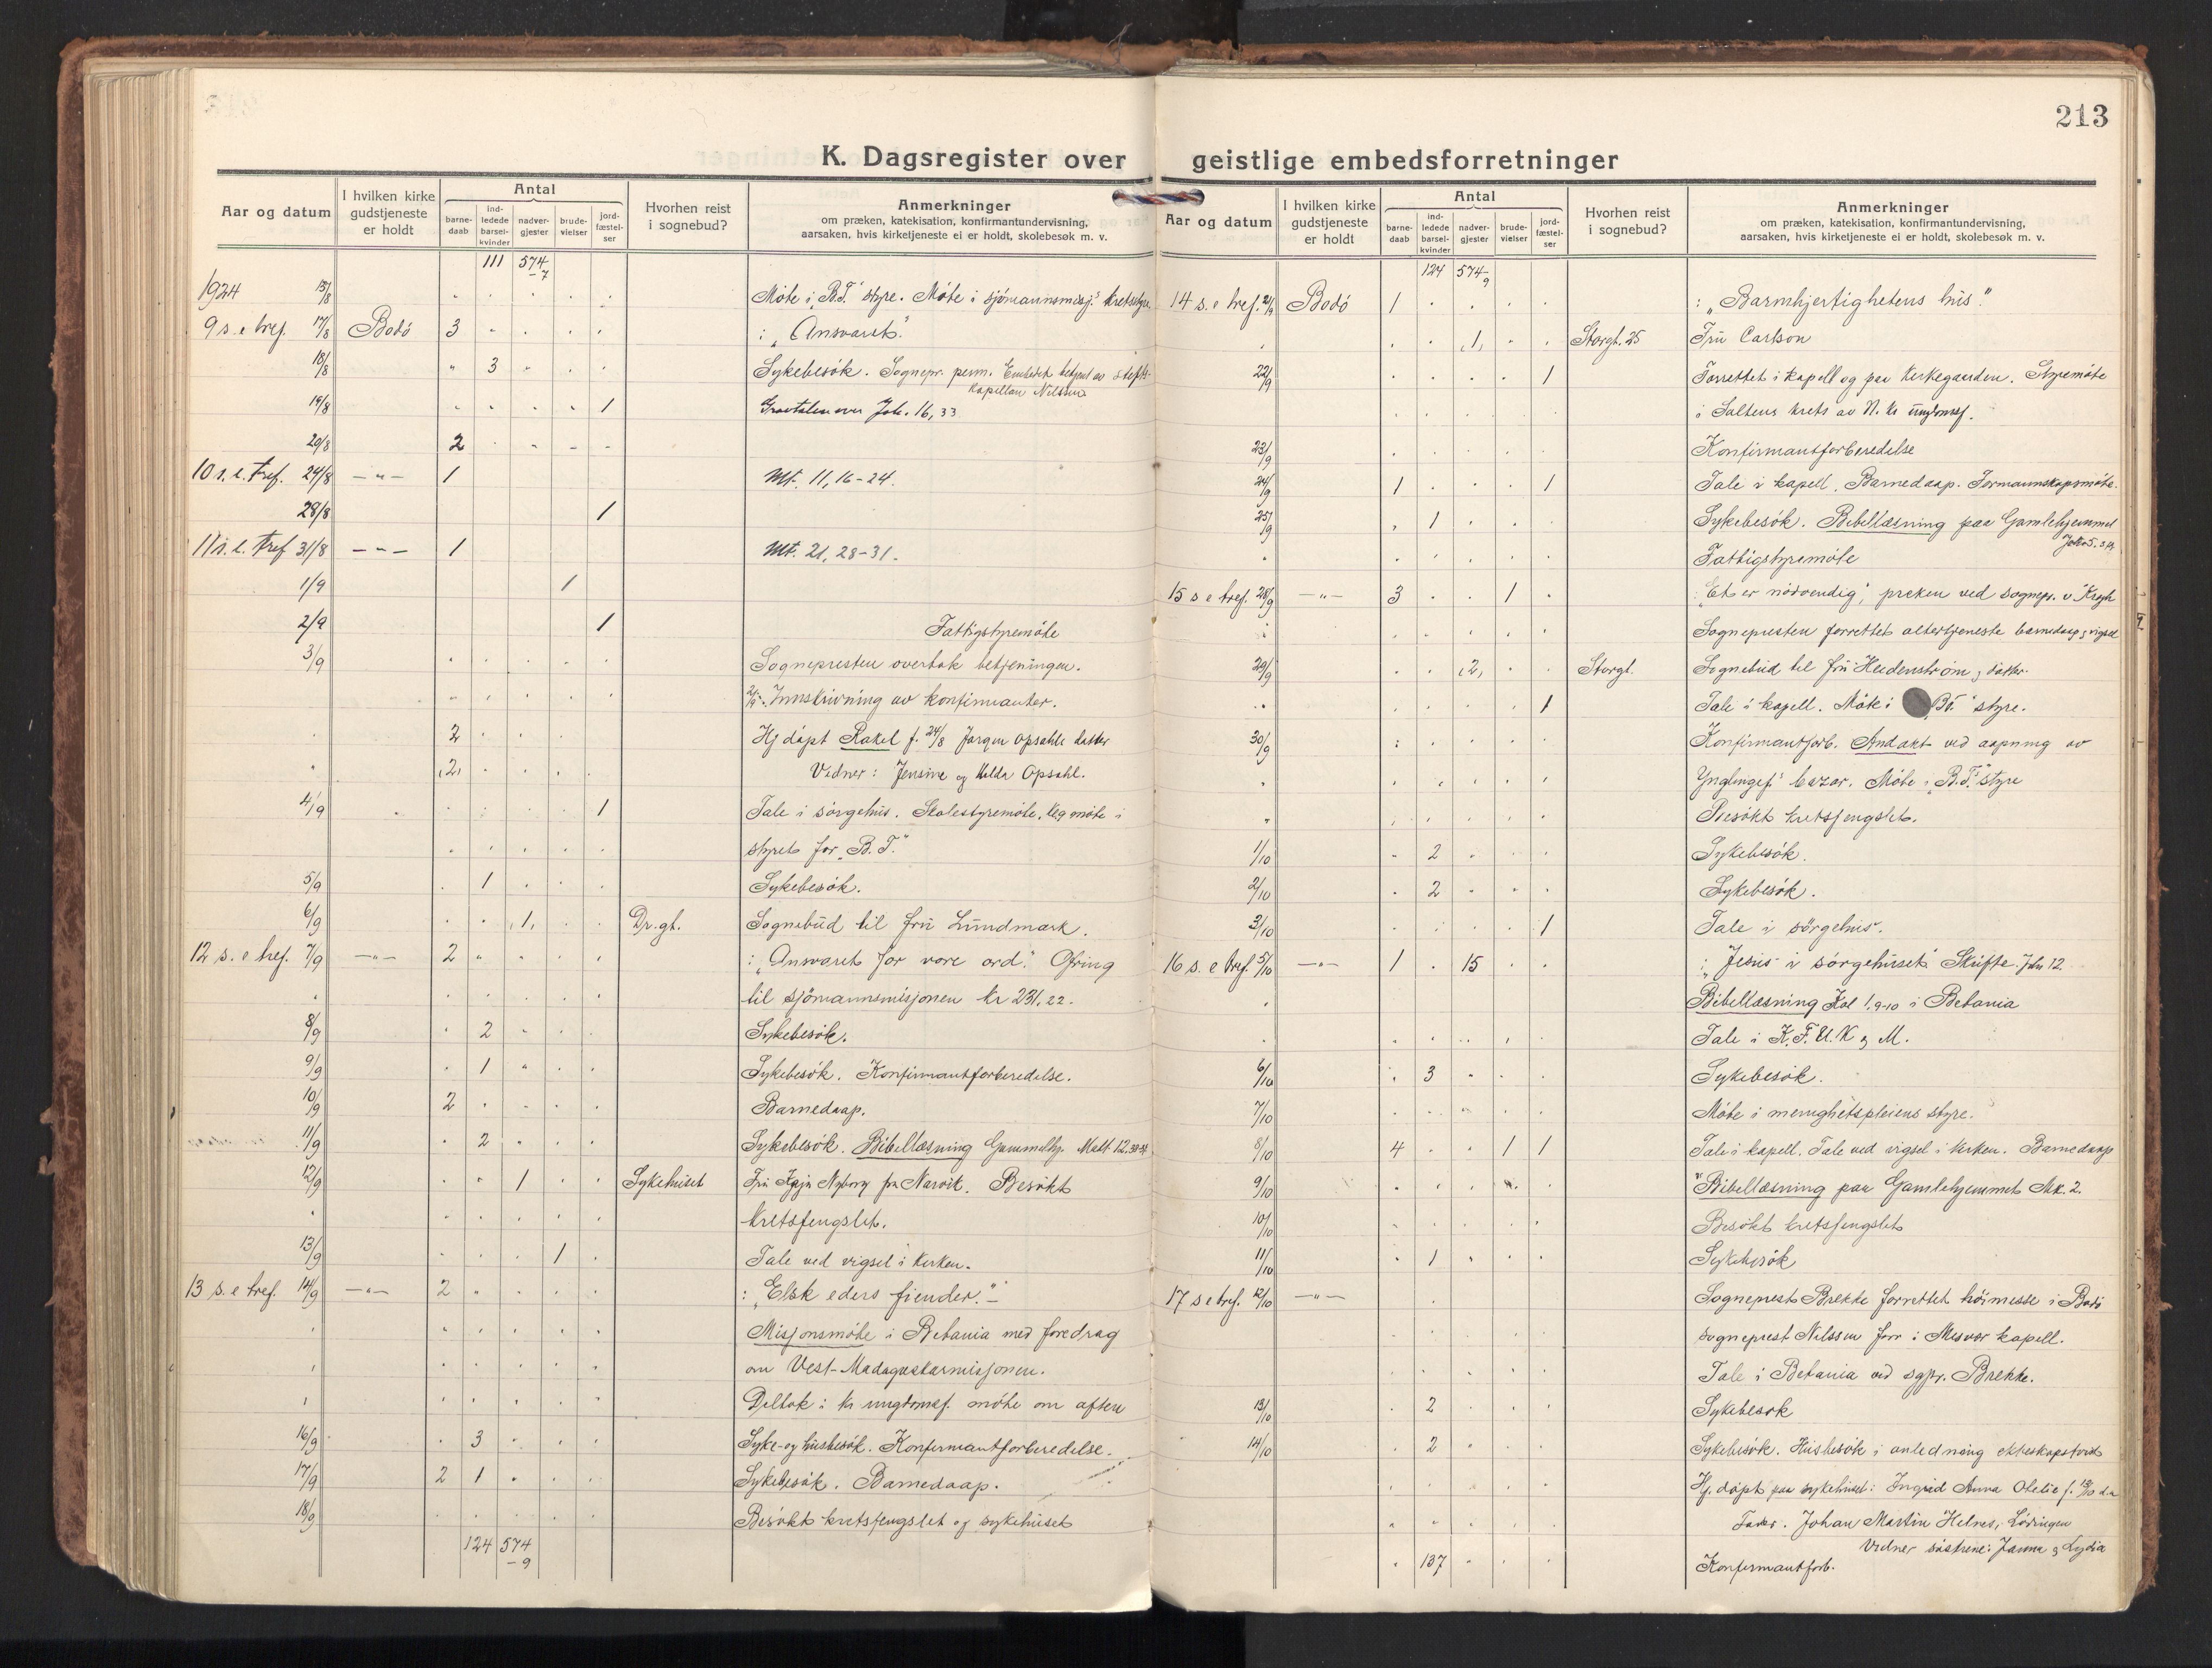 213
K. Dagsregister over geistlige embedsforretninger
Aar og datum
I hvilken kirke gudstjeneste er holdt
Antal
barne-daab
ind-ledede barsel-kvinder
nadver-gjester
brude-vielser
jord-fæstel-ser
Hvorhen reist i sognebud?
Anmerkninger
om præken, katekisation, konfirmantundervisning,
aarsaken, hvis kirketjeneste ei er holdt, skolebesøk m. v.
111 574-7
1924 13/8 Møte i „B.T.“ styre. Møte i sjömannsmisj.s kretsstyre
9 s. e tref. 17/8 Bodö 3 : „Ansvaret.“
18/8 3 Sykebesök. Sognepr. perm. Embedet betjent av stifts-
kapellan Nilssen
19/8 1 Gravtalen over Joh. 16,33
20/8 2
10 s. e. tref. 24/8 -„- 1 Mt. 11, 16-24.
28/8 1
11 s. e. tref 31/8 -„- 1 Mt. 21, 28-31.
1/9 1
2/9 1 Fattigstyremöte
3/9 Sognepresten overtok betjeningen.
2/9 Innskrivning av konfirmanter.
2 Hj döpt Rakel f. 24/8 Jørgen Opsahls datter
2 Vidner: Jensine og Halda Opsahl.
4/9 1 Tale i sörgehus. Skolestyremöte, og möte i
styret for „B. T.“
5/9 1 Sykebesök.
6/9 1 Dr.gt. Sognebud til fru Lundmark.
12 s. e tref. 7/9 -„- 2 : „Ansvaret for vore ord.“ Ofring
til sjömannsmisjonen kr 231,22.
8/9 2 Sykebesök.
9/9 1 Sykebesök. Konfirmantforberedelse.
10/9 2 Barnedaap.
11/9 2 Sykebesök. Bibellæsning Gammelhj. Matt 12.
12/9 1 Sykehuset Fru Nyborg fra Narvik. Besökt
kretsfengslet.
13/9 1 Tale ved vigsel i kirken.
13 s. e tref. 14/9 -„- 2 : „Elsk eders fiender.“ -
Misjonsmöte i Betania med foredrag
om Vest-Madagaskarmisjonen.
Deltok i kr ungdomsf. möte om aften
16/9 3 Syke- og husbesök. Konfirmantforberedelse.
17/9 2 1 Sykebesök. Barnedaap.
18/9 Besökt kretsfengslet og sykehuset
124 574-9
Aar og datum
I hvilken kirke gudstjeneste er holdt
Antal
barne-daab
ind-ledede barsel-kvinder
nadver-gjester
brude-vielser
jord-fæstel-ser
Hvorhen reist i sognebud?
Anmerkninger
om præken, katekisation, konfirmantundervisning,
aarsaken, hvis kirketjeneste ei er holdt, skolebesøk m. v.
124 574-9
14 s. e tref. 21/9 Bodö 1 : „Barmhjertighetens hus.“
1 Storgt. 25 Fru Carlson
22/9 1 Forrettet i kapell og paa kirkegaarden. Styremöte
i Saltens krets av N. kr ungdomsf.
23/9 Konfirmantforberedelse
24/9 1 1 Tale i kapell. Barnedaap. Formannskapsmöte.
25/9 1 Sykebesök. Bibellæsning paa Gamlehjemmet
Fattigstyremöte
15 s e tref. 28/9 -„- 3 1 : „Et er nödvendig“, preken ved sognepr. v Krogh
Sognepresten forrettet altertjeneste barnedaap & vigsel
29/9 2 Storgt. Sognebud til fru Heidenström & datter.
1 Tale i kapell. Möte i „BT“ styre.
30/9 Konfirmantforb. Andakt ved aapning av
Ynglingef.s bazar. Möte i „B.T.“ styre
Besökt kretsfengslet.
1/10 2 Sykebesök.
2/10 2 Sykebesök.
3/10 1 Tale i sörgehus.
16 s. e tref. 5/10 -„- 1 15 : „Jesus i sörgehuset“ Skrifte. Joh 12.
Bibellæsning Kol 1.9-10 i Betania
Tale i K.F.U.K & M.
6/10 3 Sykebesök.
7/10 Möte i menighetspleiens styre.
8/10 4 1 1 Tale i kapell. Tale ved vigsel i kirken. Barnedaap
9/10 Bibellæsning paa Gamlehjemmet Mk. 2.
10/10 Besökt kretsfengslet
11/10 1 Sykebesök
17 s e tref. 12/10 -„- Sogneprest Brekke forrettet höimesse i Bodö
sogneprest Nilssen forr i Misvær kapell.
Tale i Betania ved sgpr. Brekke.
13/10 2 Sykebesök
14/10 2 Sykebesök. Husbesök i anledning ekteskapstvist
Hj. döpt paa sykehuset: Ingrid Anna Otelie f. 13/10 d.a
Fader. Johan Martin Helnes, Lödingen
Vidner söstrene: Janna & Lydia
137 Konfirmantforb.